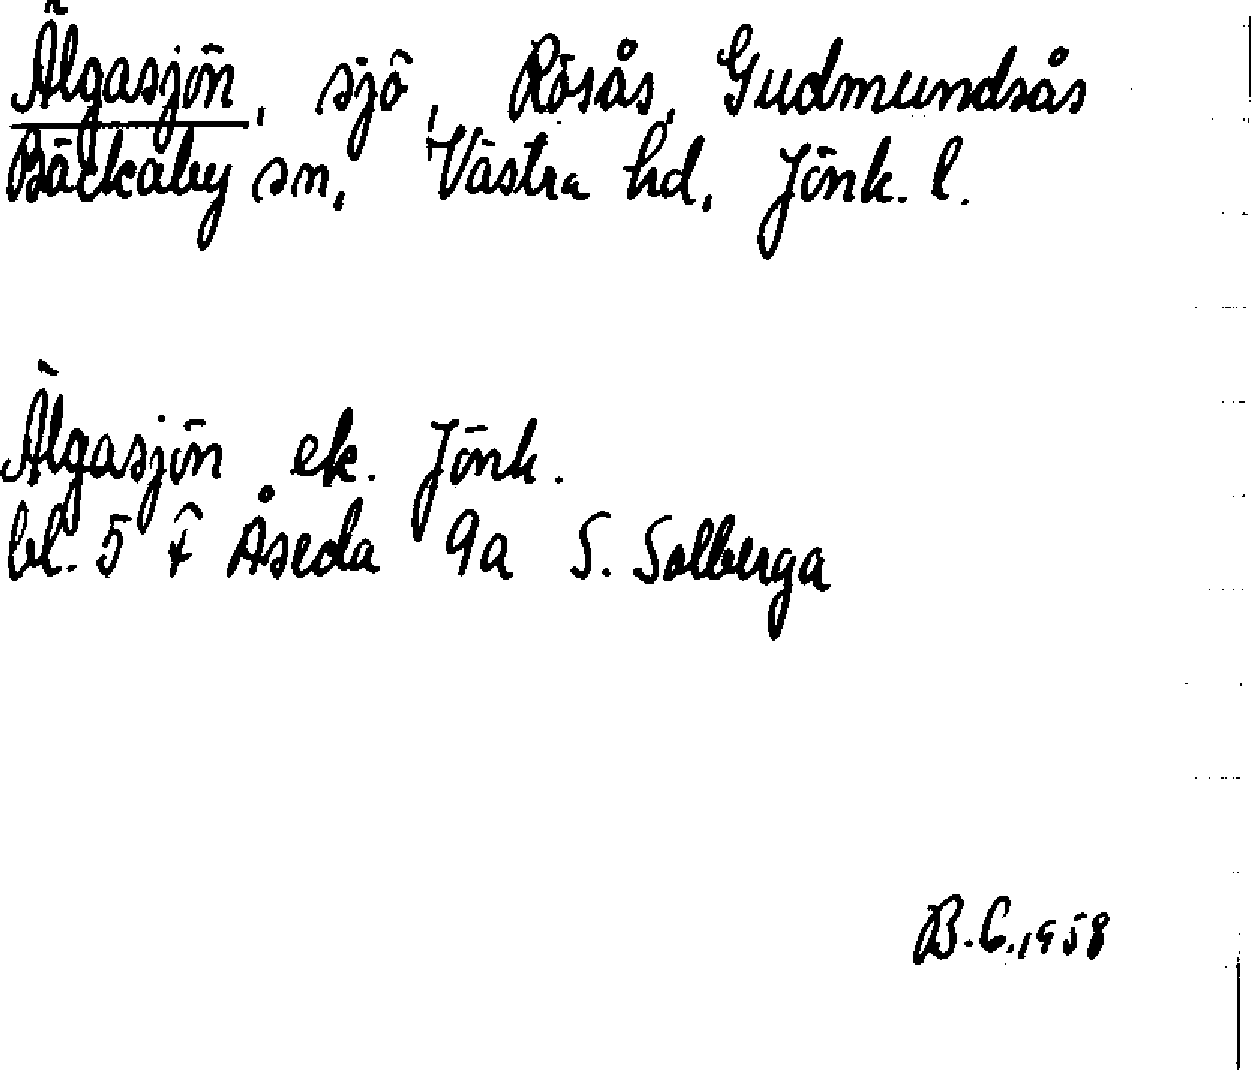 Älgasjön, sjö, Rösås, Gudmundsås
Bäckaby sn, Västra hd, Jönk. l.
Älgasjön ek. Jönk.
bl. 5 F Åseda 9a S. Solberga
B.C. 1958